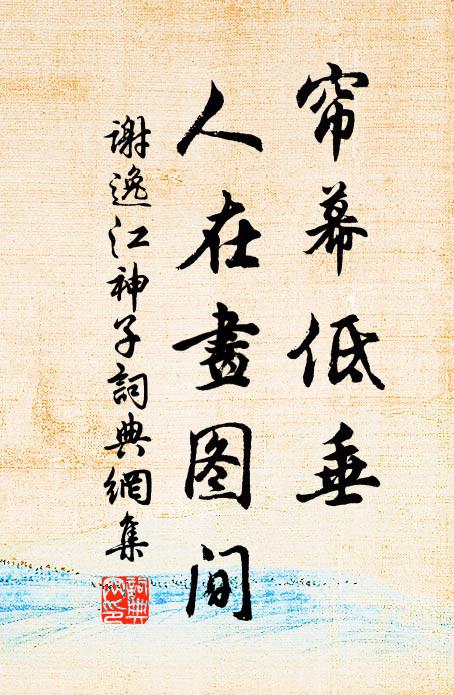 帘幕低垂
人在畫图间
谢逸江神子詞典網集